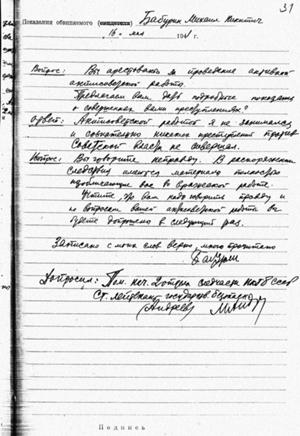 31
Показания обвиняемого (свидетеля) Бабурин Михаил Никитич
16 " мая 1941 г.
Вопрос: Вы арестованы за проведение активной
антисоветской работы.
Предлагаем вам дать подробные показания
о совершенных вами преступлениях?
Ответ: Антисоветской работой я не занимался
и сознательно никаких преступлений против
Советской власти не совершал.
Вопрос: Вы говорите неправду. В распоряжении
следствия имеются материалы полностью
изобличающие вас во вражеской работе.
Учтите, что вам надо говорить правду и
по вопросам вашей антисоветской работы вы
будете допрошены в следующий раз.
Записано с моих слов верно, мною прочитано
Бабурин
Допросил: Пом. нач. 2 отдел следчасти НКГБ СССР
Ст. лейтенант государств. безопасно
(Андреев)
Подпись